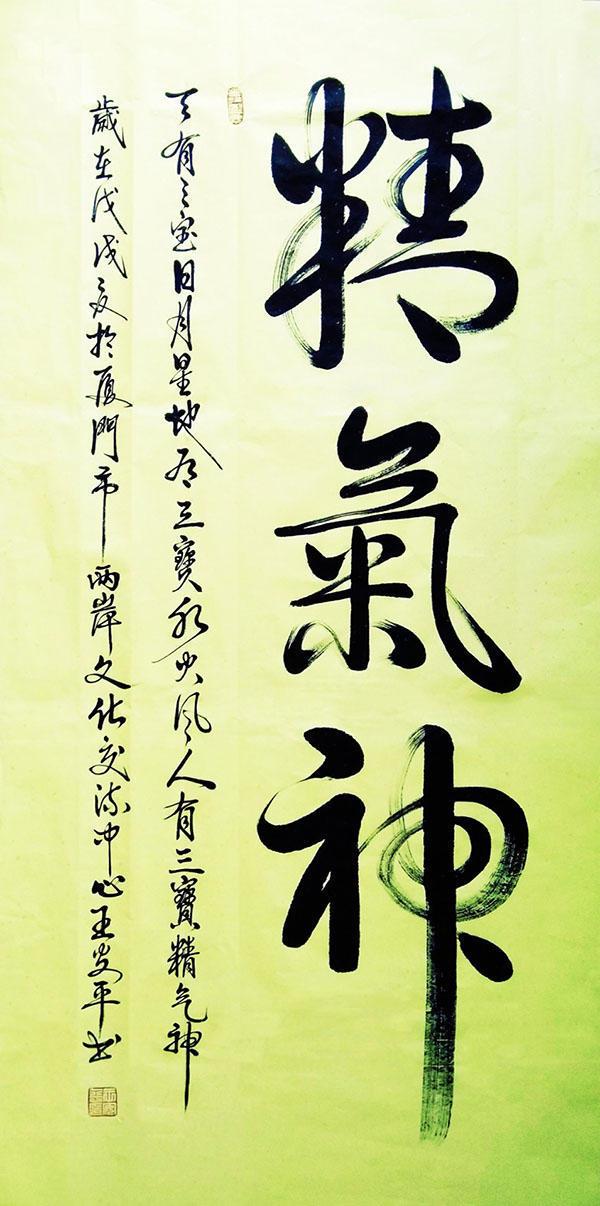 精氣神
天有三宝日月星地有三寳水火风人有三寳精气神
歲在戊戌夏於厦門市両岸文化交流中心王安平书